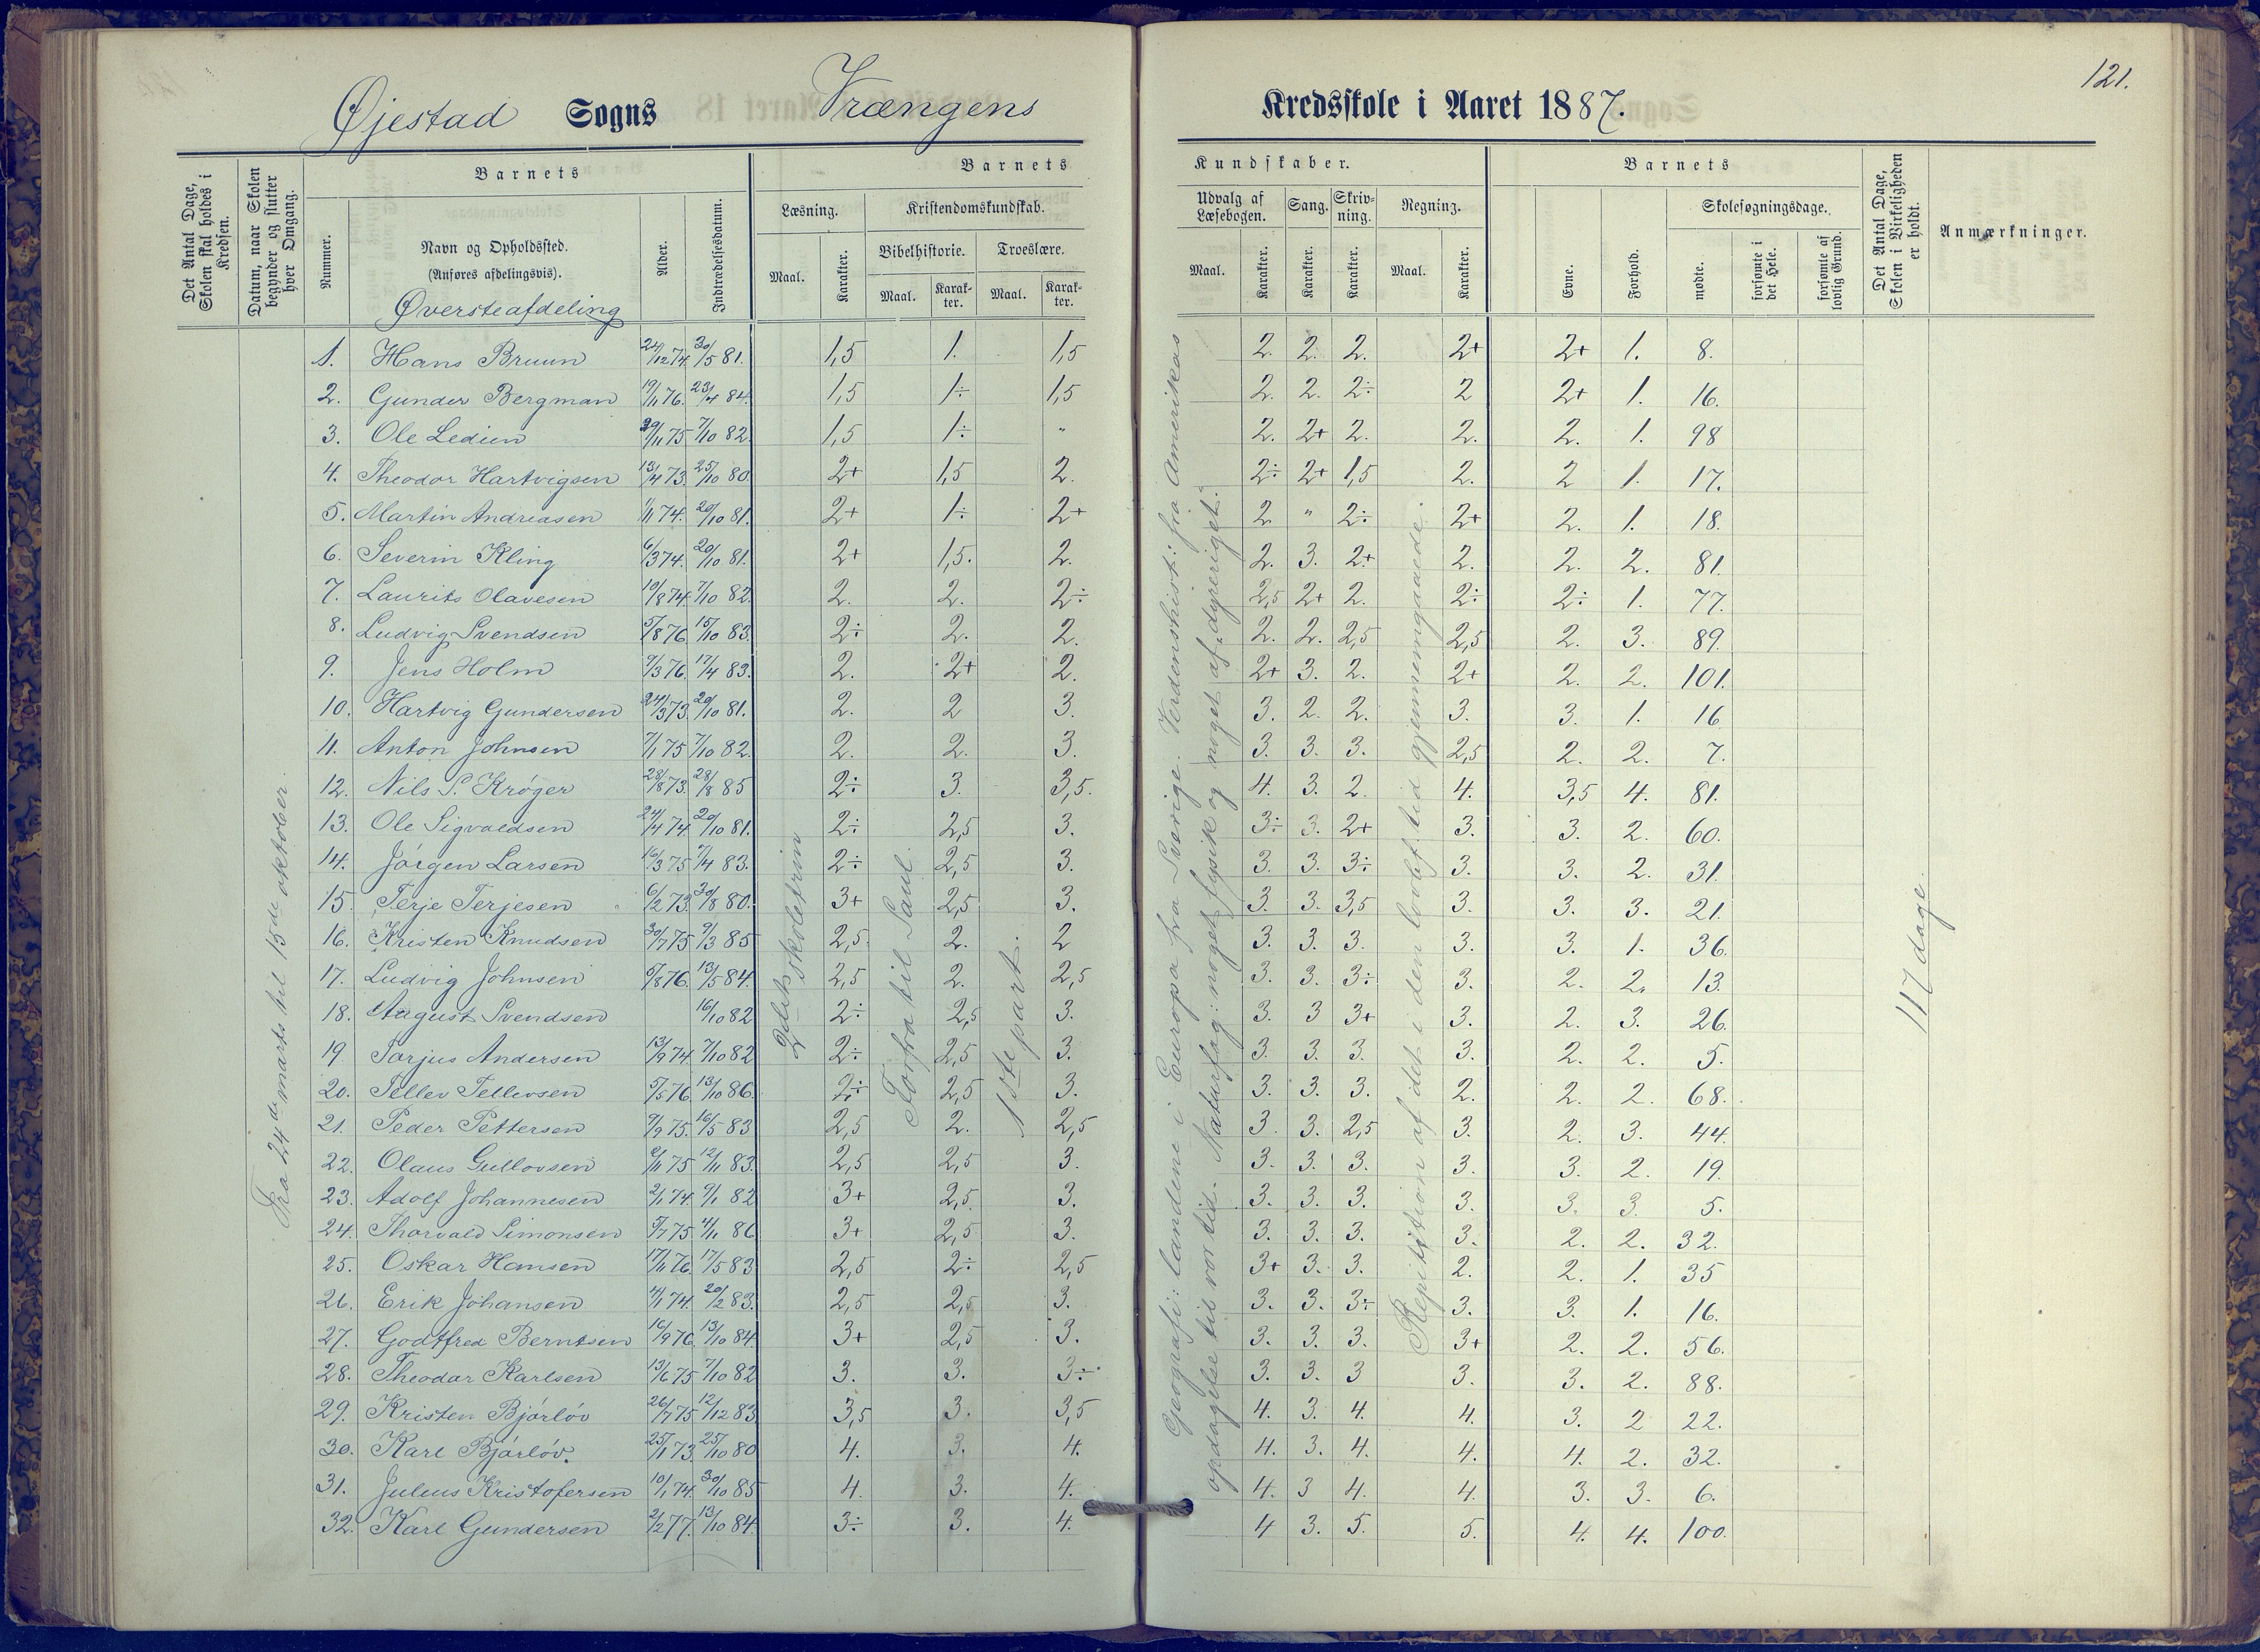 121.
Øjestad Sogns Vrængens Kredsskole i Aaret 1887.
Det Antal Dage, Skolen skal holdes i Kredsen.
Datum, naar Skolen begynder og slutter hver Omgang.
Barnets
Nummer.
Navn og Opholdssted.
(Anføres afdelingsvis).
Øversteafdeling
Alder.
Indtrædelsesdatum.
Barnets Kundskaber.
Læsning. Kristendomskundskab. Udvalg af Læsebogen. Sang. Skrivning. Regning.
Bibelhistorie. Troeslære.
Maal. Karakter. Maal. Karakter. Maal. Karakter. Maal. Karakter. Karakter. Karakter. Maal. Karakter.
Barnets
Evne. Forhold. Skolesøgningsdage.
mødte. forsømte i det Hele. forsømte af lovlig Grund.
Det Antal Dage, Skolen i Virkeligheden er holdt.
Anmærkninger.
1. Hans Bruun 24/12 74. 30/5 81. 1,5 1. 1,5 2. 2. 2. 2+ 2+ 1. 8.
2. Gunder Bergman 19/11 76. 23/4 84. 1,5 1÷ 1,5 2. 2. 2÷ 2 2+ 1. 16.
3. Ole Ledien 29/11 75 7/10 82. 1,5 1÷ " 2. 2+ 2. 2. 2. 1. 98
4. Theodor Hartvigsen 13/4 73. 25/10 80. 2+ 1,5 2. 2÷ 2+ 1,5 2. 2 1. 17.
5. Martin Andreasen 1/11 74. 20/10 81. 2+ 1÷ 2+ 2. " 2÷ 2+ 2. 1. 18.
6. Severin Kling 6/3 74. 20/10 81. 2+ 1,5. 2. 2. 3. 2+ 2. 2. 2. 81.
7. Laurits Olavesen 19/8 74. 7/10 82. 2. 2. 2÷ 2,5 2+ 2. 2÷ 2÷ 1. 77.
8. Ludvig Svendsen 5/8 76 15/10 83. 2÷ 2. 2. 2. 2. 2,5 2,5 2. 3. 89.
9. Jens Holm 9/3 76. 17/4 83. 2. 2+ 2. 2+ 3. 2. 2+ 2. 2. 101.
10. Hartvig Gundersen 24/3 73. 20/10 81. 2. 2 3. 3. 2. 2. 3. 3. 1. 16
11. Anton Johnsen 7/1 75 7/10 82. 2. 2. 3. 3. 3. 3. 2,5 2. 2. 7.
12. Nils S. Krøger 28/8 73. 28/8 85 2÷ 3. 3,5. 4. 3. 2. 4. 3,5 4. 81.
13. Ole Sigvaldsen 24/4 74. 20/10 81. 2÷ 2,5 3. 3÷ 3. 2+ 3. 3. 2. 60.
14. Jørgen Larsen 16/3 75 7/4 83. 2÷ 2,5 3. 3. 3. 3÷ 3. 3. 2. 31.
15. Terje Terjesen 6/2 73. 30/8 80. 3+ 2,5 3. 3. 3. 3,5 3. 3. 3. 21.
16. Kristen Knudsen 30/7 75 9/3 85 2,5 2. 2 3. 3. 3. 3. 3. 1. 36.
17. Ludvig Johnsen 5/8 76. 13/5 84. 2,5 2. 2,5 3. 3. 3÷ 3. 2. 2. 13.
18. August Svendsen 16/10 82 2÷ 2,5 3. 3. 3 3+ 3. 2. 3. 26.
19. Tarjus Andersen 13/9 74. 7/10 82 2÷ 2,5 3. 3. 3. 3. 3. 2. 2. 5.
20. Tellev Tellevsen 5/5 76 13/10 86. 2÷ 2,5 3. 3. 3. 3. 2. 2. 2. 68.
21. Peder Pettersen 9/9 75. 16/5 83 2,5 2. 2,5 3. 3. 2,5 3. 2. 3. 44.
22. Olaus Gullovsen 2/11 75 12/11 83. 2,5 2,5 3. 3. 3. 3. 3. 3. 2. 19.
23. Adolf Johannesen 2/1 74. 9/1 82 3+ 2,5. 3. 3. 3. 3. 3. 3. 3. 5.
24. Thorvald Simonsen 5/7 75 4/11 86 3+ 2,5 3. 3. 3. 3. 3. 2. 2. 32.
25. Oskar Hansen 17/11 76. 17/5 83 2,5 2÷ 2,5 3+ 3. 3. 2. 2. 1. 35
26. Erik Johansen 4/1 74. 20/2 83. 2,5 2,5 3. 3. 3. 3÷ 3. 3. 1. 16.
27. Godtfred Berntsen 16/9 76. 13/10 84. 3+ 2,5 3. 3. 3. 3. 3+ 2. 2. 56.
28. Theodor Karlsen 13/6 75 7/10 82 3. 3. 3÷ 3. 3. 3 3. 3. 2. 88.
29. Kristen Bjørløv 26/7 75 12/12 83 3,5 3. 3,5 4. 3. 4. 4. 3. 2 22.
30. Karl Bjørløv. 25/1 73. 25/10 80 4. 3. 4. 4. 3. 4. 4. 4. 2. 32.
31. Julius Kristofersen 10/1 74. 30/10 85 4. 3. 4. 4. 3 4. 4. 3. 3. 6.
32. Karl Gundersen 2/2 77. 13/10 84. 3÷ 3. 4. 4 3. 5. 5. 4. 4. 100.
Fra 24de marts til 15de oktober.
2det skoletrin
Forfra til Saul.
1ste part.
Geografi: landene i Europa fra Sverige. Verdenshist: fra Amerikas
opdagelse til vor tid. Naturfag: noget fysik og noget af „dyreriget".
Repitition af det i den lovbef. tid gjennemgaaede.
117 dage.